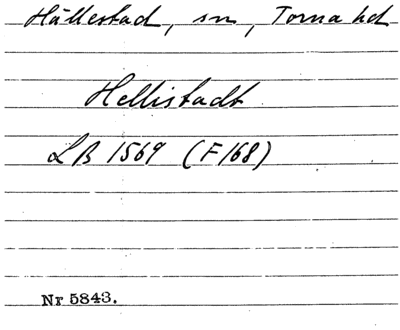 Hällestad, sn, Torna hd
Hellistadt
LB 1569 (F168)
Nr 5843.